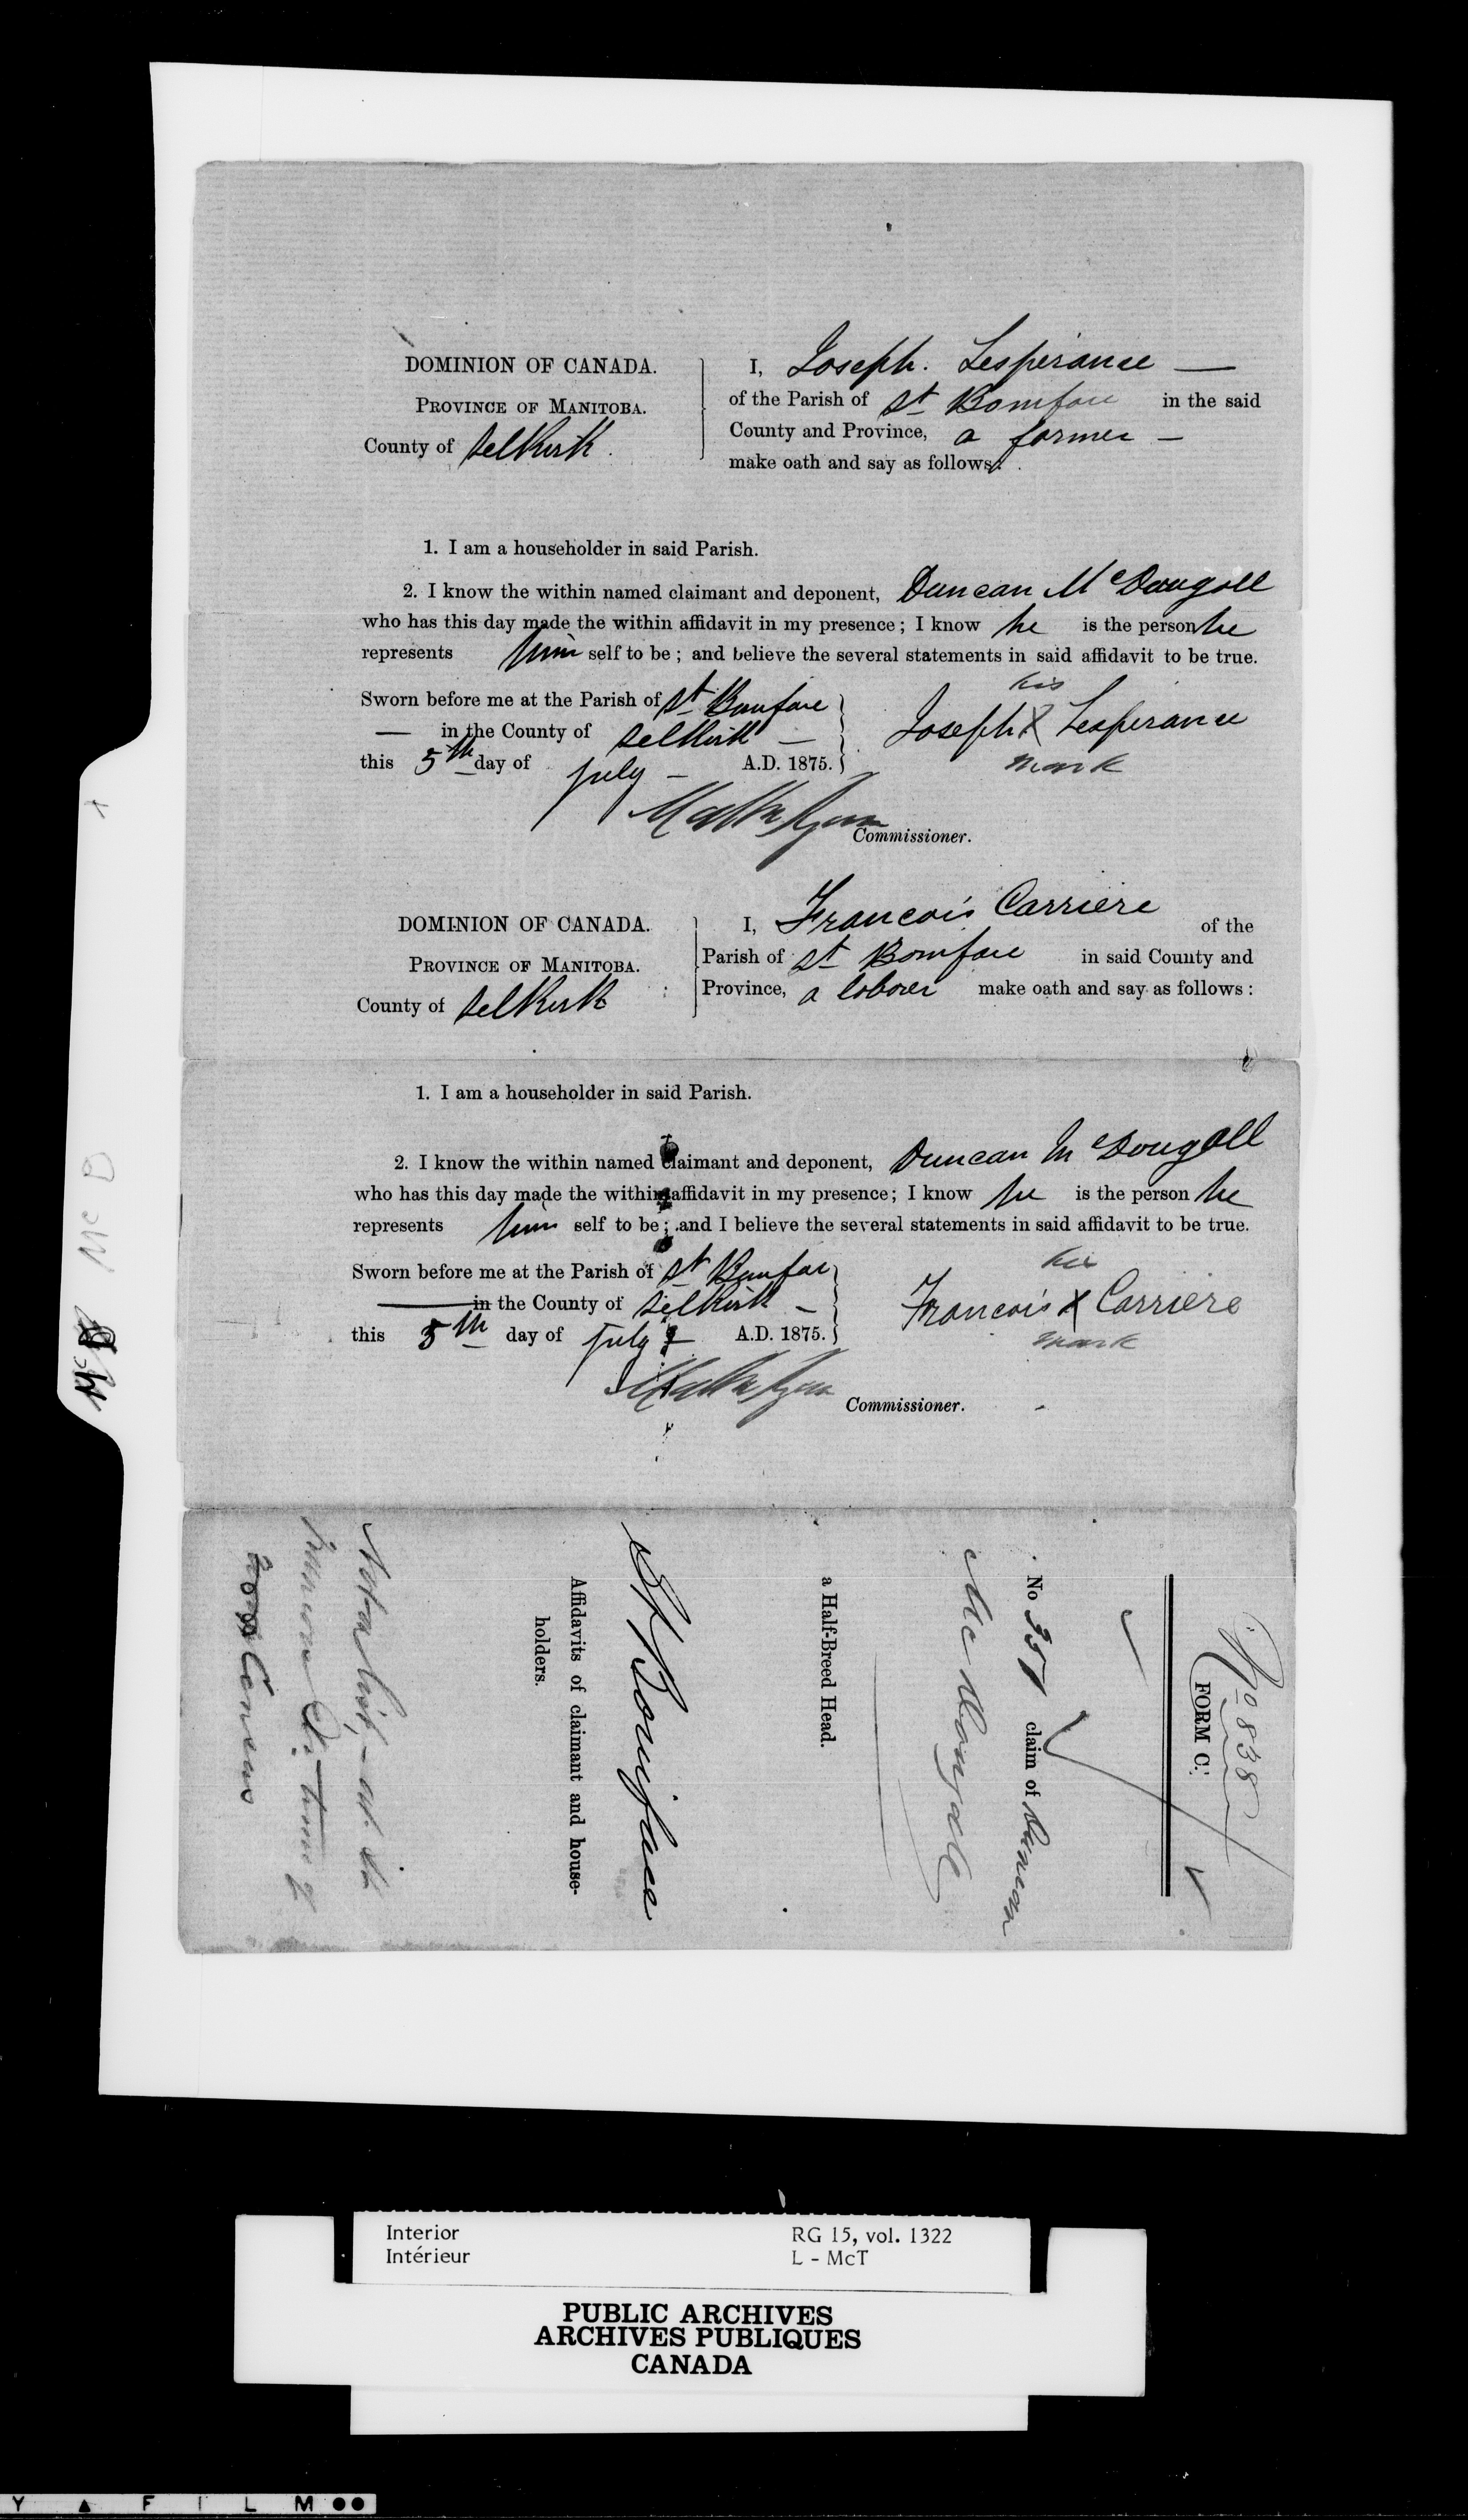 DOMINION OF CANADA.
PROVINCE OF MANITOBA.
County of Selkirk.
I, Joseph. Lesperance —
of the Parish of St Boniface in the said
County and Province, a farmer —
make oath and say as follows:
1. I am a householder in said Parish.
2. I know the within named claimant and deponent, Duncan McDougall
who has this day made the within affidavit in my presence; I know he is the person he
represents him self to be; and believe the several statements in said affidavit to be true.
Sworn before me at the Parish of St Boniface
— in the County of Selkirk —
this 5th day of July — A.D. 1875.
his
Joseph X Lesperance
mark
Commissioner.
DOMINION OF CANADA.
PROVINCE OF MANITOBA.
County of Selkirk
I, Francois Carriere of the
Parish of St Boniface in said County and
Province, a laborer make oath and say as follows:
1. I am a householder in said Parish.
2. I know the within named claimant and deponent, Duncan McDougall
who has this day made the within affidavit in my presence; I know he is the person he
represents him self to be; and I believe the several statements in said affidavit to be true.
Sworn before me at the Parish of St Boniface
— in the County of Selkirk —
this 5th day of July A.D. 1875.
his
Francois X Carriere
mark
Commissioner.
No 838
FORM C.
No 351 claim of Duncan
McDougall
a Half-Breed Head.
St Boniface
Affidavits of claimant and house-
holders.
Census
McD
McD
Interior
Intérieur
RG 15, vol. 1322
L - McT
PUBLIC ARCHIVES
ARCHIVES PUBLIQUES
CANADA
Y ▲ F I L M ●●